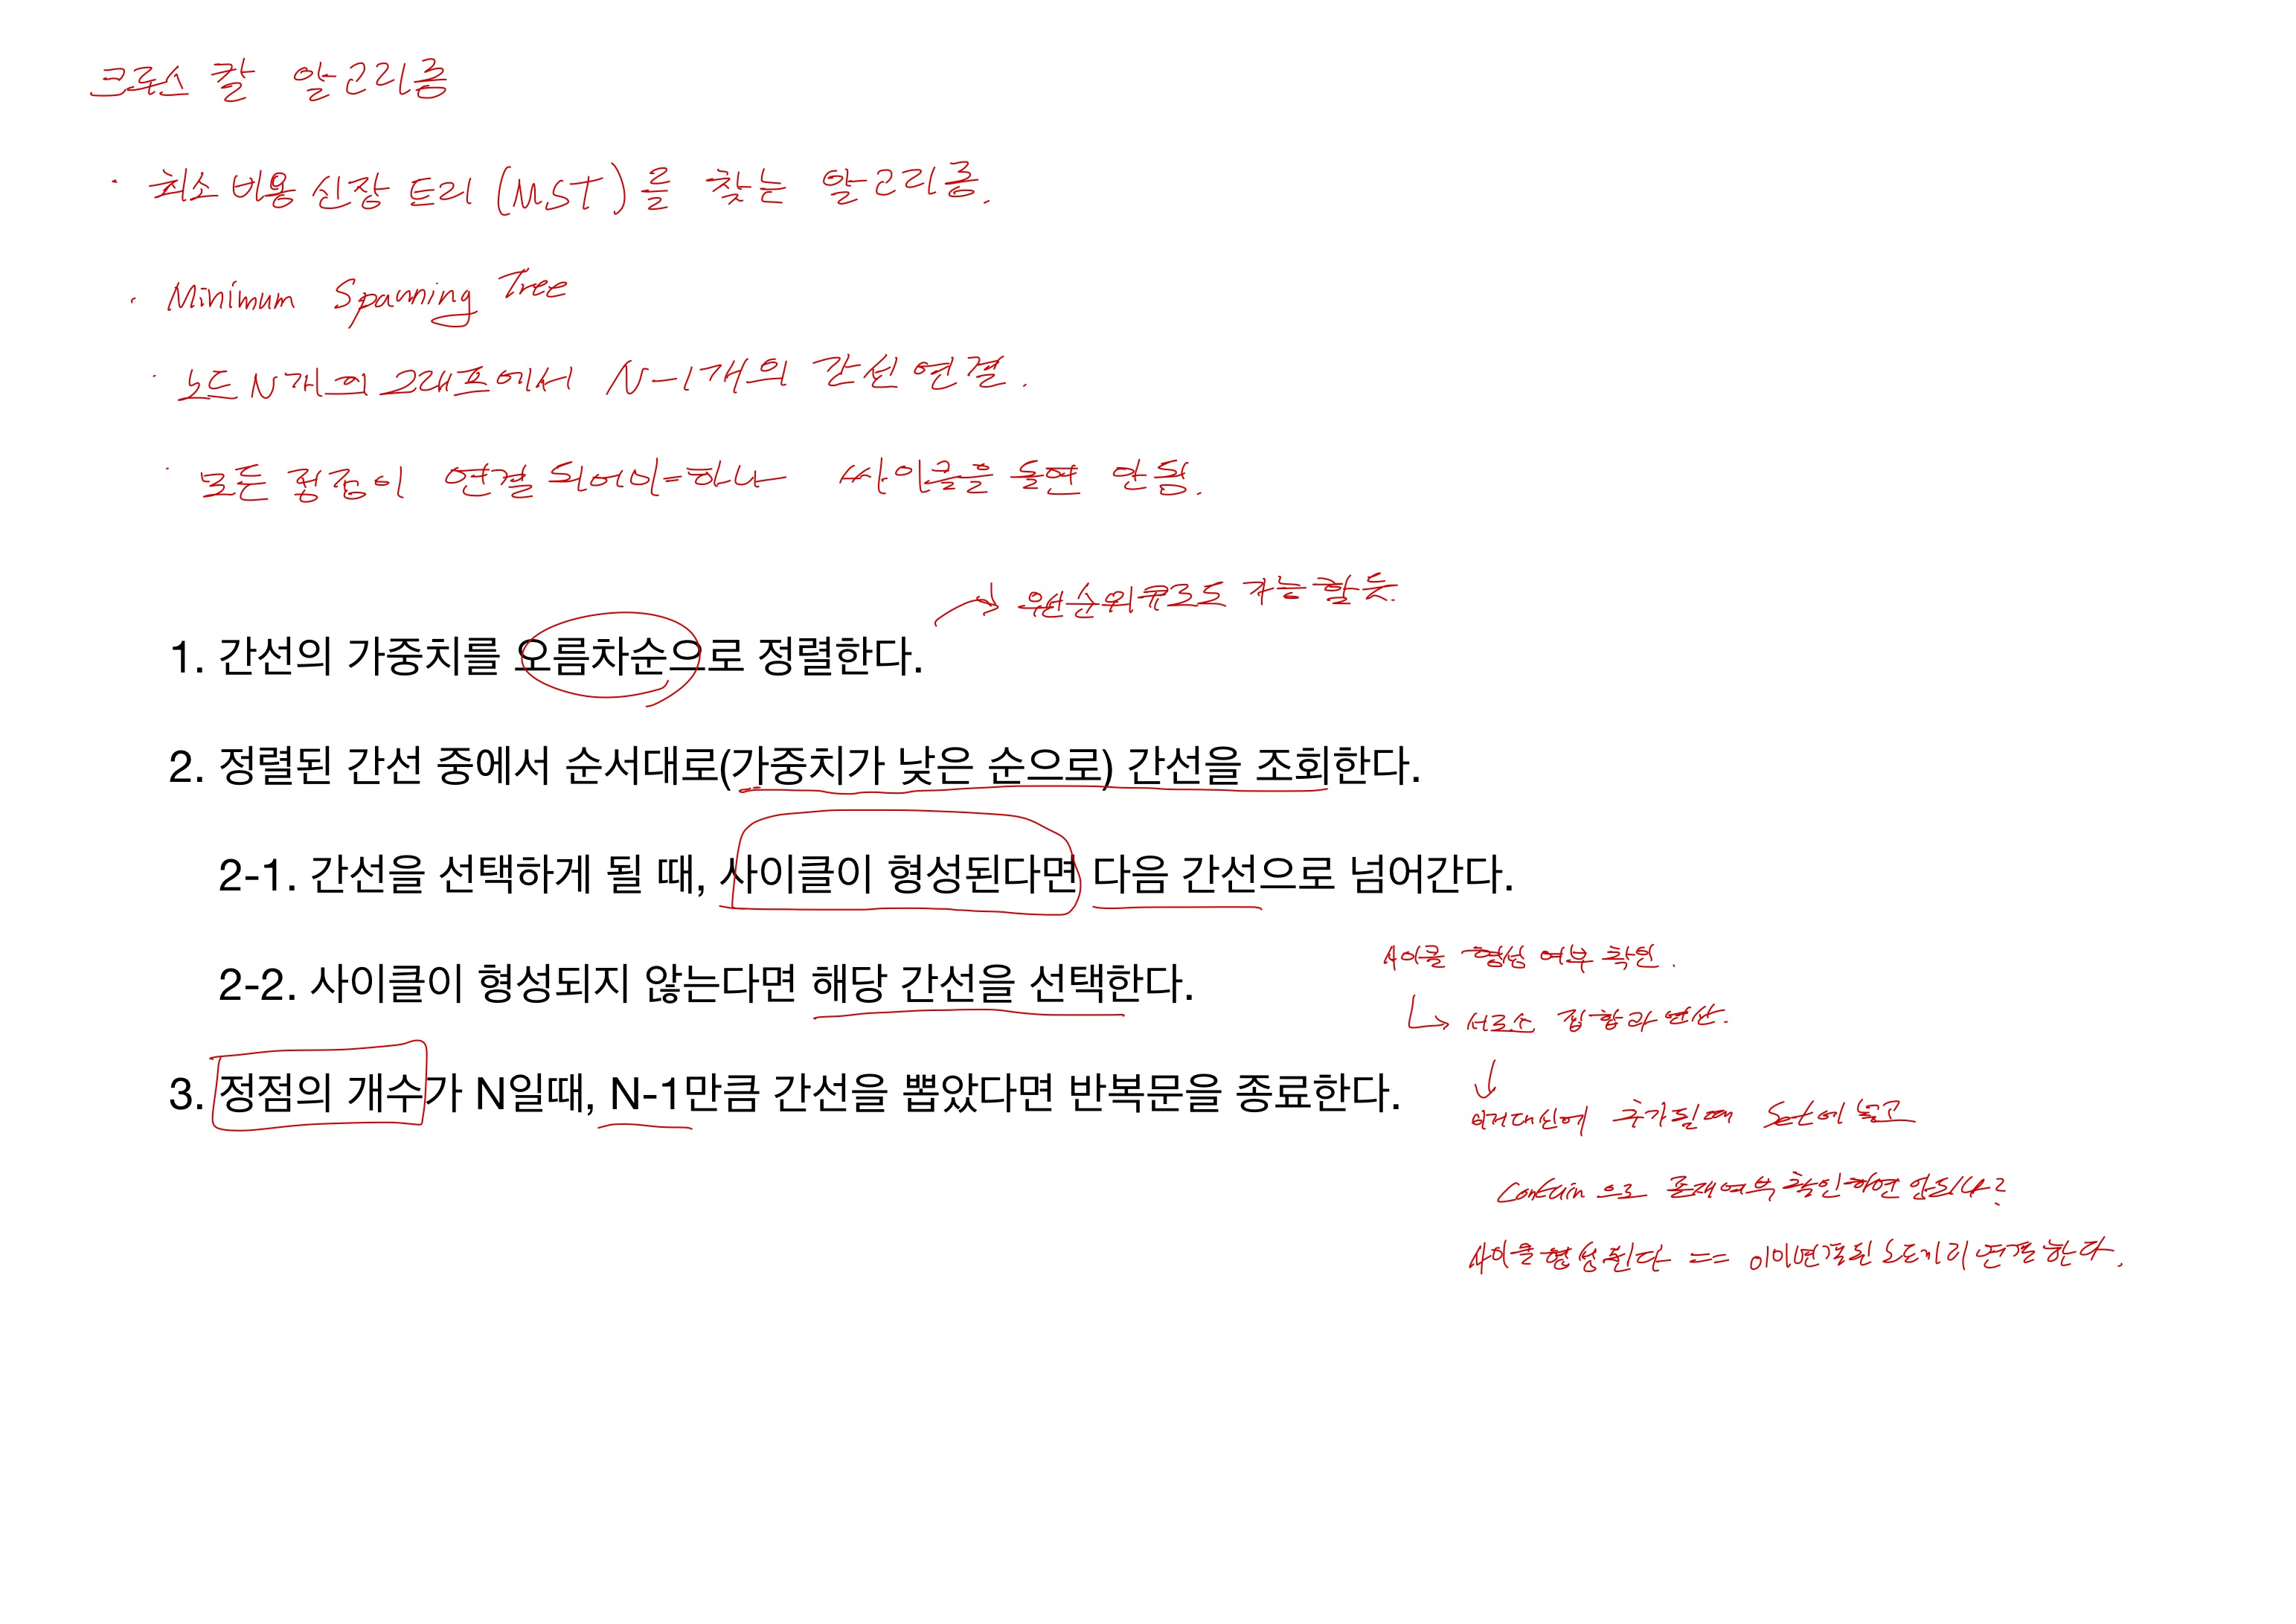 크루스칼 알고리즘
· 최소 비용 신장 트리 (MST)를 찾는 알고리즘.
· Minimum Spanning Tree
· 노드 N개의 그래프에서 N-1개의 간선 연결.
· 모든 정점이 연결되어야하나 싸이클을 돌면 안됨.
→ 우선순위큐로도 가능할듯.
1. 간선의 가중치를 오름차순으로 정렬한다.
2. 정렬된 간선 중에서 순서대로(가중치가 낮은 순으로) 간선을 조회한다.
2-1. 간선을 선택하게 될 때, 사이클이 형성된다면 다음 간선으로 넘어간다.
사이클 형성 여부 확인.
2-2. 사이클이 형성되지 않는다면 해당 간선을 선택한다.
↳ 서로소 집합과 연산.
3. 정점의 개수가 N일때, N-1만큼 간선을 뽑았다면 반복문을 종료한다.
↓
이거대신에 추가될때 Set에 넣고
Contain 으로 존재여부 확인하면 안되나?
사이클형성된다 == 이미연결된 노드끼리 연결한다.